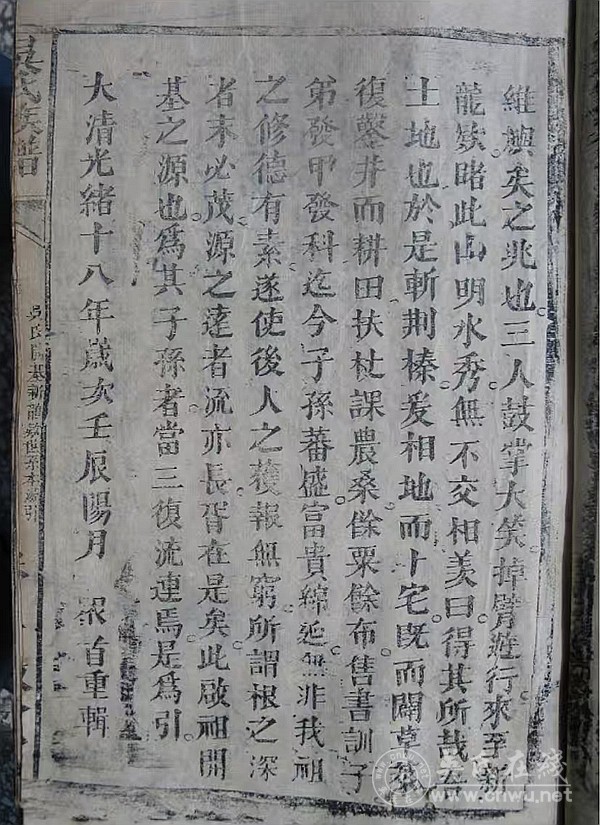 維輿矣之兆也三人鼓掌大笑掉臂遊行來至新
龍欸睹此山明水秀無不交相羡曰得其所哉
土地也於是斬荆榛爰相地而卜宅旣而闢草萊
復鑿井而耕田扶杖課農桑餘粟餘布售書訓子
弟發甲發科迄今子孫蕃盛富貴綿延無非我祖
之修德有素遂使後人之穫報無窮所謂根之深
者末必茂源之遠者流亦長胥在是矣此啟祖開
基之源也爲其子孫者當三復流連焉是爲引
大清光緒十八年歲次壬辰陽月 衆首重輯
吳氏族譜
吳氏開基新龍
引
吳氏在线
www.criwu.net